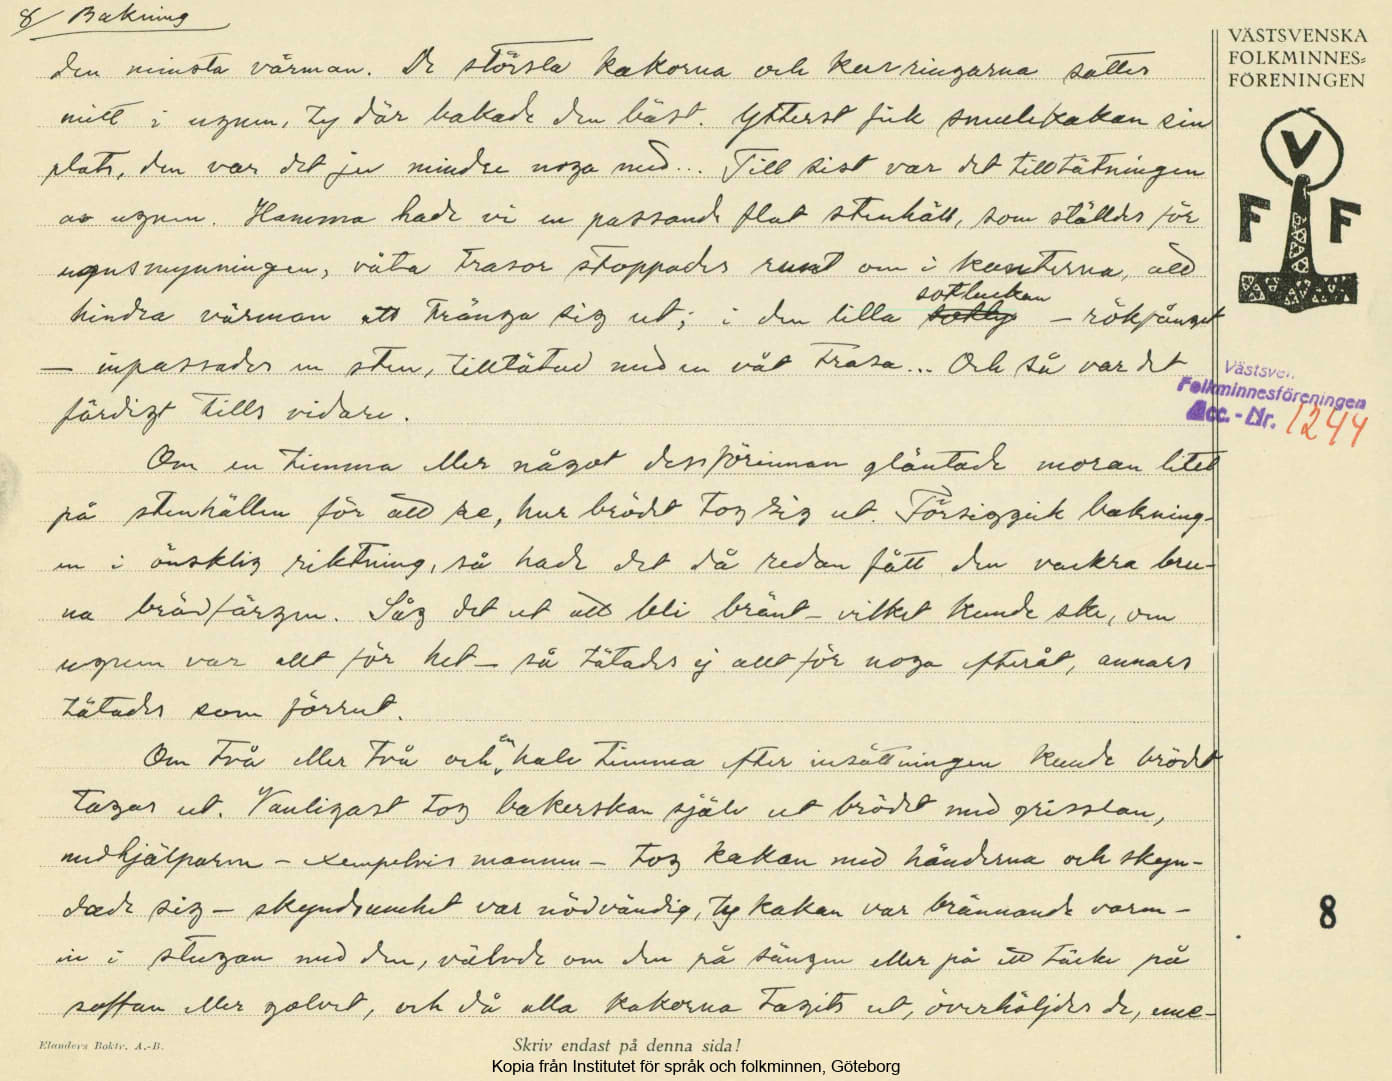 8/ Bakning
den minsta värman. De största kakorna och kurringarna sattes
mitt i ugnen, ty där bakade den bäst. Ytterst fick smulekakan sin
plats, den var det ju mindre noga med... Till sist var det tilltätningen
av ugnen. Hemma hade vi en passande flat stenhäll, som ställdes för
ugnsmynningen, våta trasor stoppades runt om i kanterna, att
hindra värman att tränga sig ut; i den lilla sotluckan – rökfånget
– inpassades en sten, tilltätad med en våt trasa... Och så var det
färdigt tills vidare.
Om en timma eller något dessförinnan gläntade moran litet
på stenhällen för att se, hur brödet tog sig ut. Försiggick bakning-
en i önsklig riktning, så hade det då redan fått den vackra bru-
na brödfärgen. Såg det ut att bli bränt – vilket kunde ske, om
ugnen var allt för het – så tätades ej allt för noga efteråt, annars
tätades som förrut.
Om två eller två och en halv timma efter insättningen kunde brödet
tagas ut. Vanligast tog bakerskan själv ut brödet med grisslan,
medhjälparen – exempelvis mannen – tog kakan med händerna och skyn-
dade sig – skyndsamhet var nödvändig, ty kakan var brännande varm –
in i stugan med den, välvde om den på sängen eller på ett täcke på
soffan eller golvet, och då alla kakorna tagits ut, överhöljdes de, me-
Elanders Boktr. A.-B.
Skriv endast på denna sida!
Kopia från Institutet för språk och folkminnen, Göteborg
VÄSTSVENSKA
FOLKMINNES-
FÖRENINGEN
V
F F
Västsven.
Folkminnesföreningen
Acc.-Nr. 1244
8